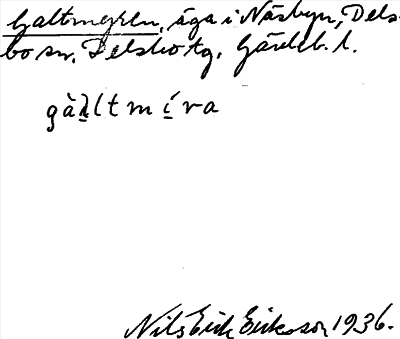 Galtmyren, äga i Näsbyn, Dels-
bo sn, Delsbo tg, Gävleb. l.
gàltmíra
Nils Erik Eriksson 1936.